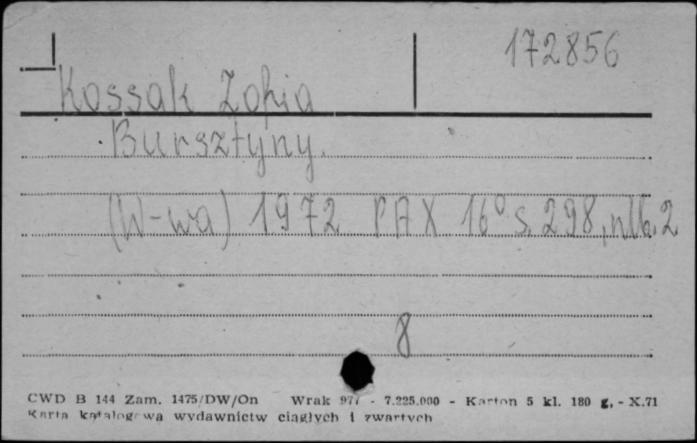 172856
Kossak Zofia
Bursztyny.
(W-wa) 1972 PAX 16° s. 298, nlb. 2
8
CWD B 144 Zam. 1475/DW/On Wrak 977 - 7.225.000 - Karton 5 kl. 180 g, - X.71
Karta katalogowa wydawnictw ciągłych i zwartych